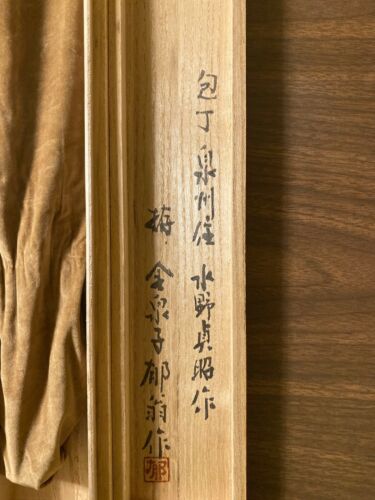 包丁 泉州住 水野貞昭作
金泉子郁翁作
郁